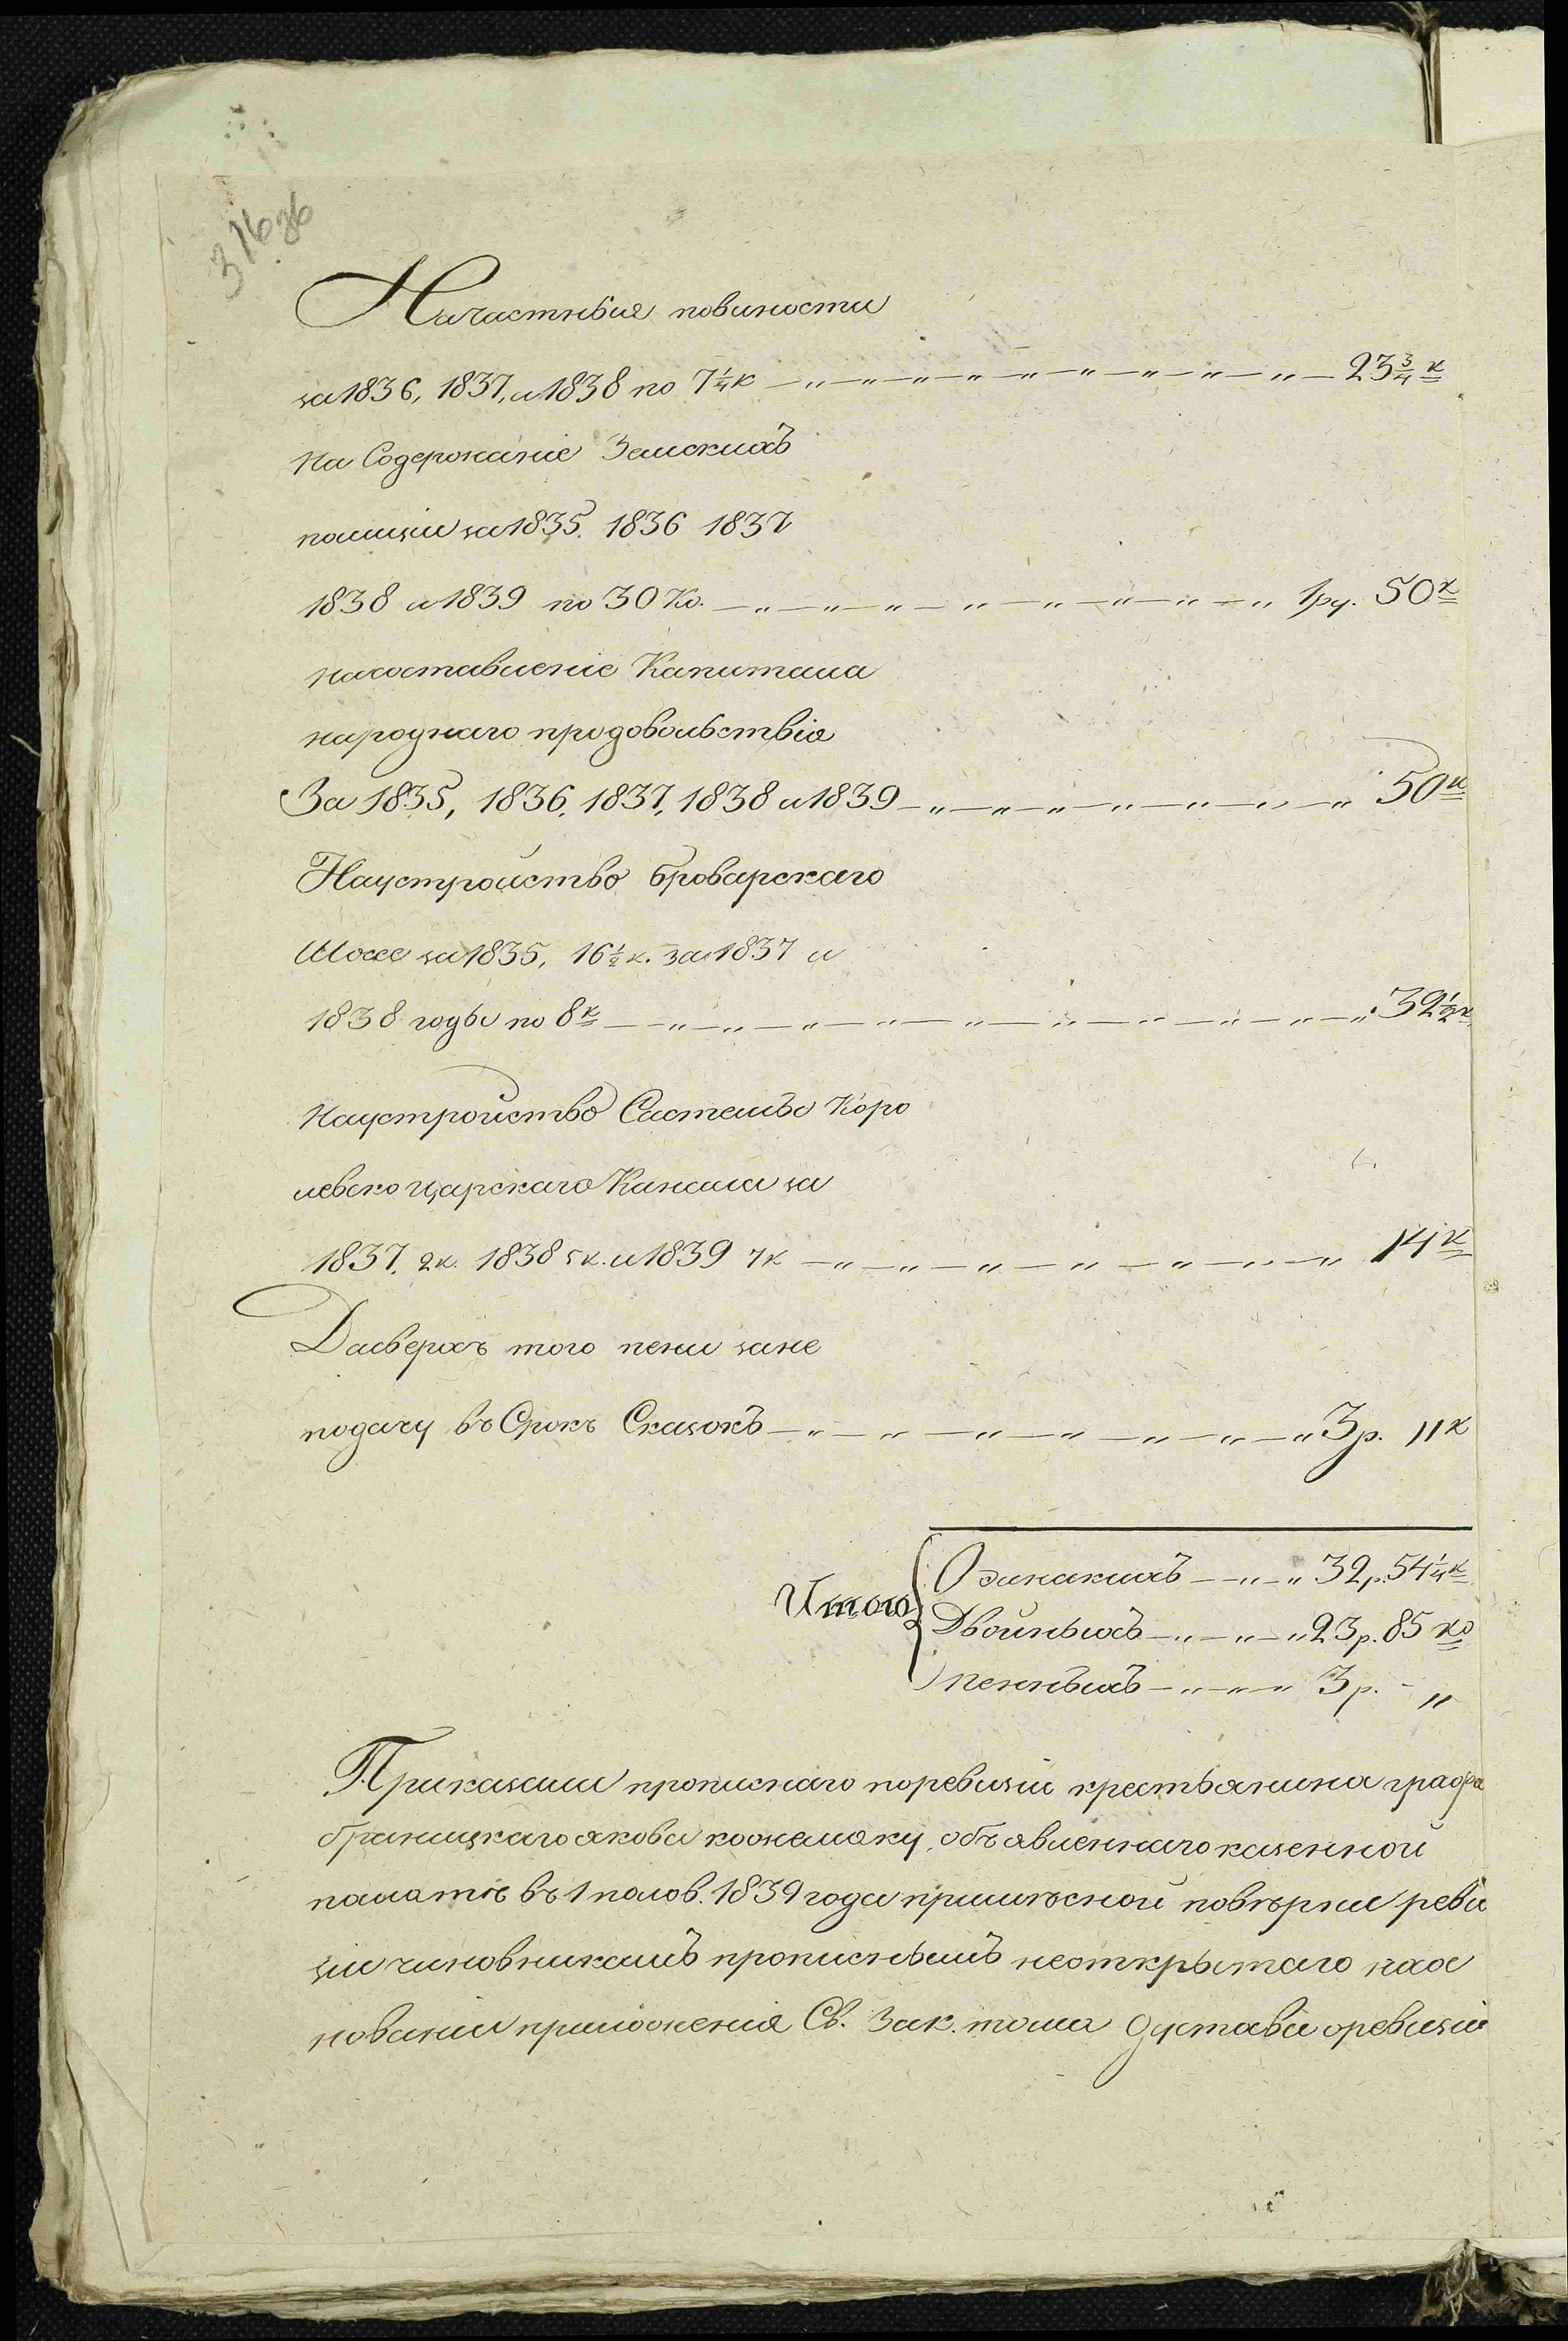 На частныя повиности
за 1836, 1837, и 1838 по 7 1/4 к —„—„—„—„—„—„—„—„—„— 23 3/4 к
на Содержаніе Земскихъ
полиціи за 1835. 1836 1837
1838 и 1839 по 30 Ко. —„—„—„—„—„—„—„—„ 1 ру. 50 к
на составленіе Капитала
народнаго продовольствія
За 1835, 1836, 1837, 1838 и 1839 —„—„—„—„—„—„—„ 50 к
На устройство броварскаго
Шоссе за 1835, 16 1/2 к. за 1837 и
1838 годы по 8 к —„—„—„—„—„—„—„—„—„ 32 1/2 к
на устройство Системы Коро
левско царскаго Канала за
1837, 2 к. 1838 5 к. и 1839 7 к —„—„—„—„—„—„—„ 14 к
Да сверхъ того пени за не
подачу въ Срокъ Сказокъ —„—„—„—„—„—„—„ 3 р. „ к
Итого
Одинакихъ —„—„ 32 р. 54 1/4 к
Двойныхъ —„—„—„ 23 р. 85 ко
пенныхъ —„—„—„ 3 р. - „
Приказали прописнаго по ревизіи крестьянина графа
браницкаго якова кожемяку, объявленнаго казенной
палатѣ въ 1 полов. 1839 года при мѣсной повѣрки реви
зіи чиновникамъ прописнымъ не открытаго на ос
нованіи приложенія Св. Зак. тома 9 устава о ревизіи